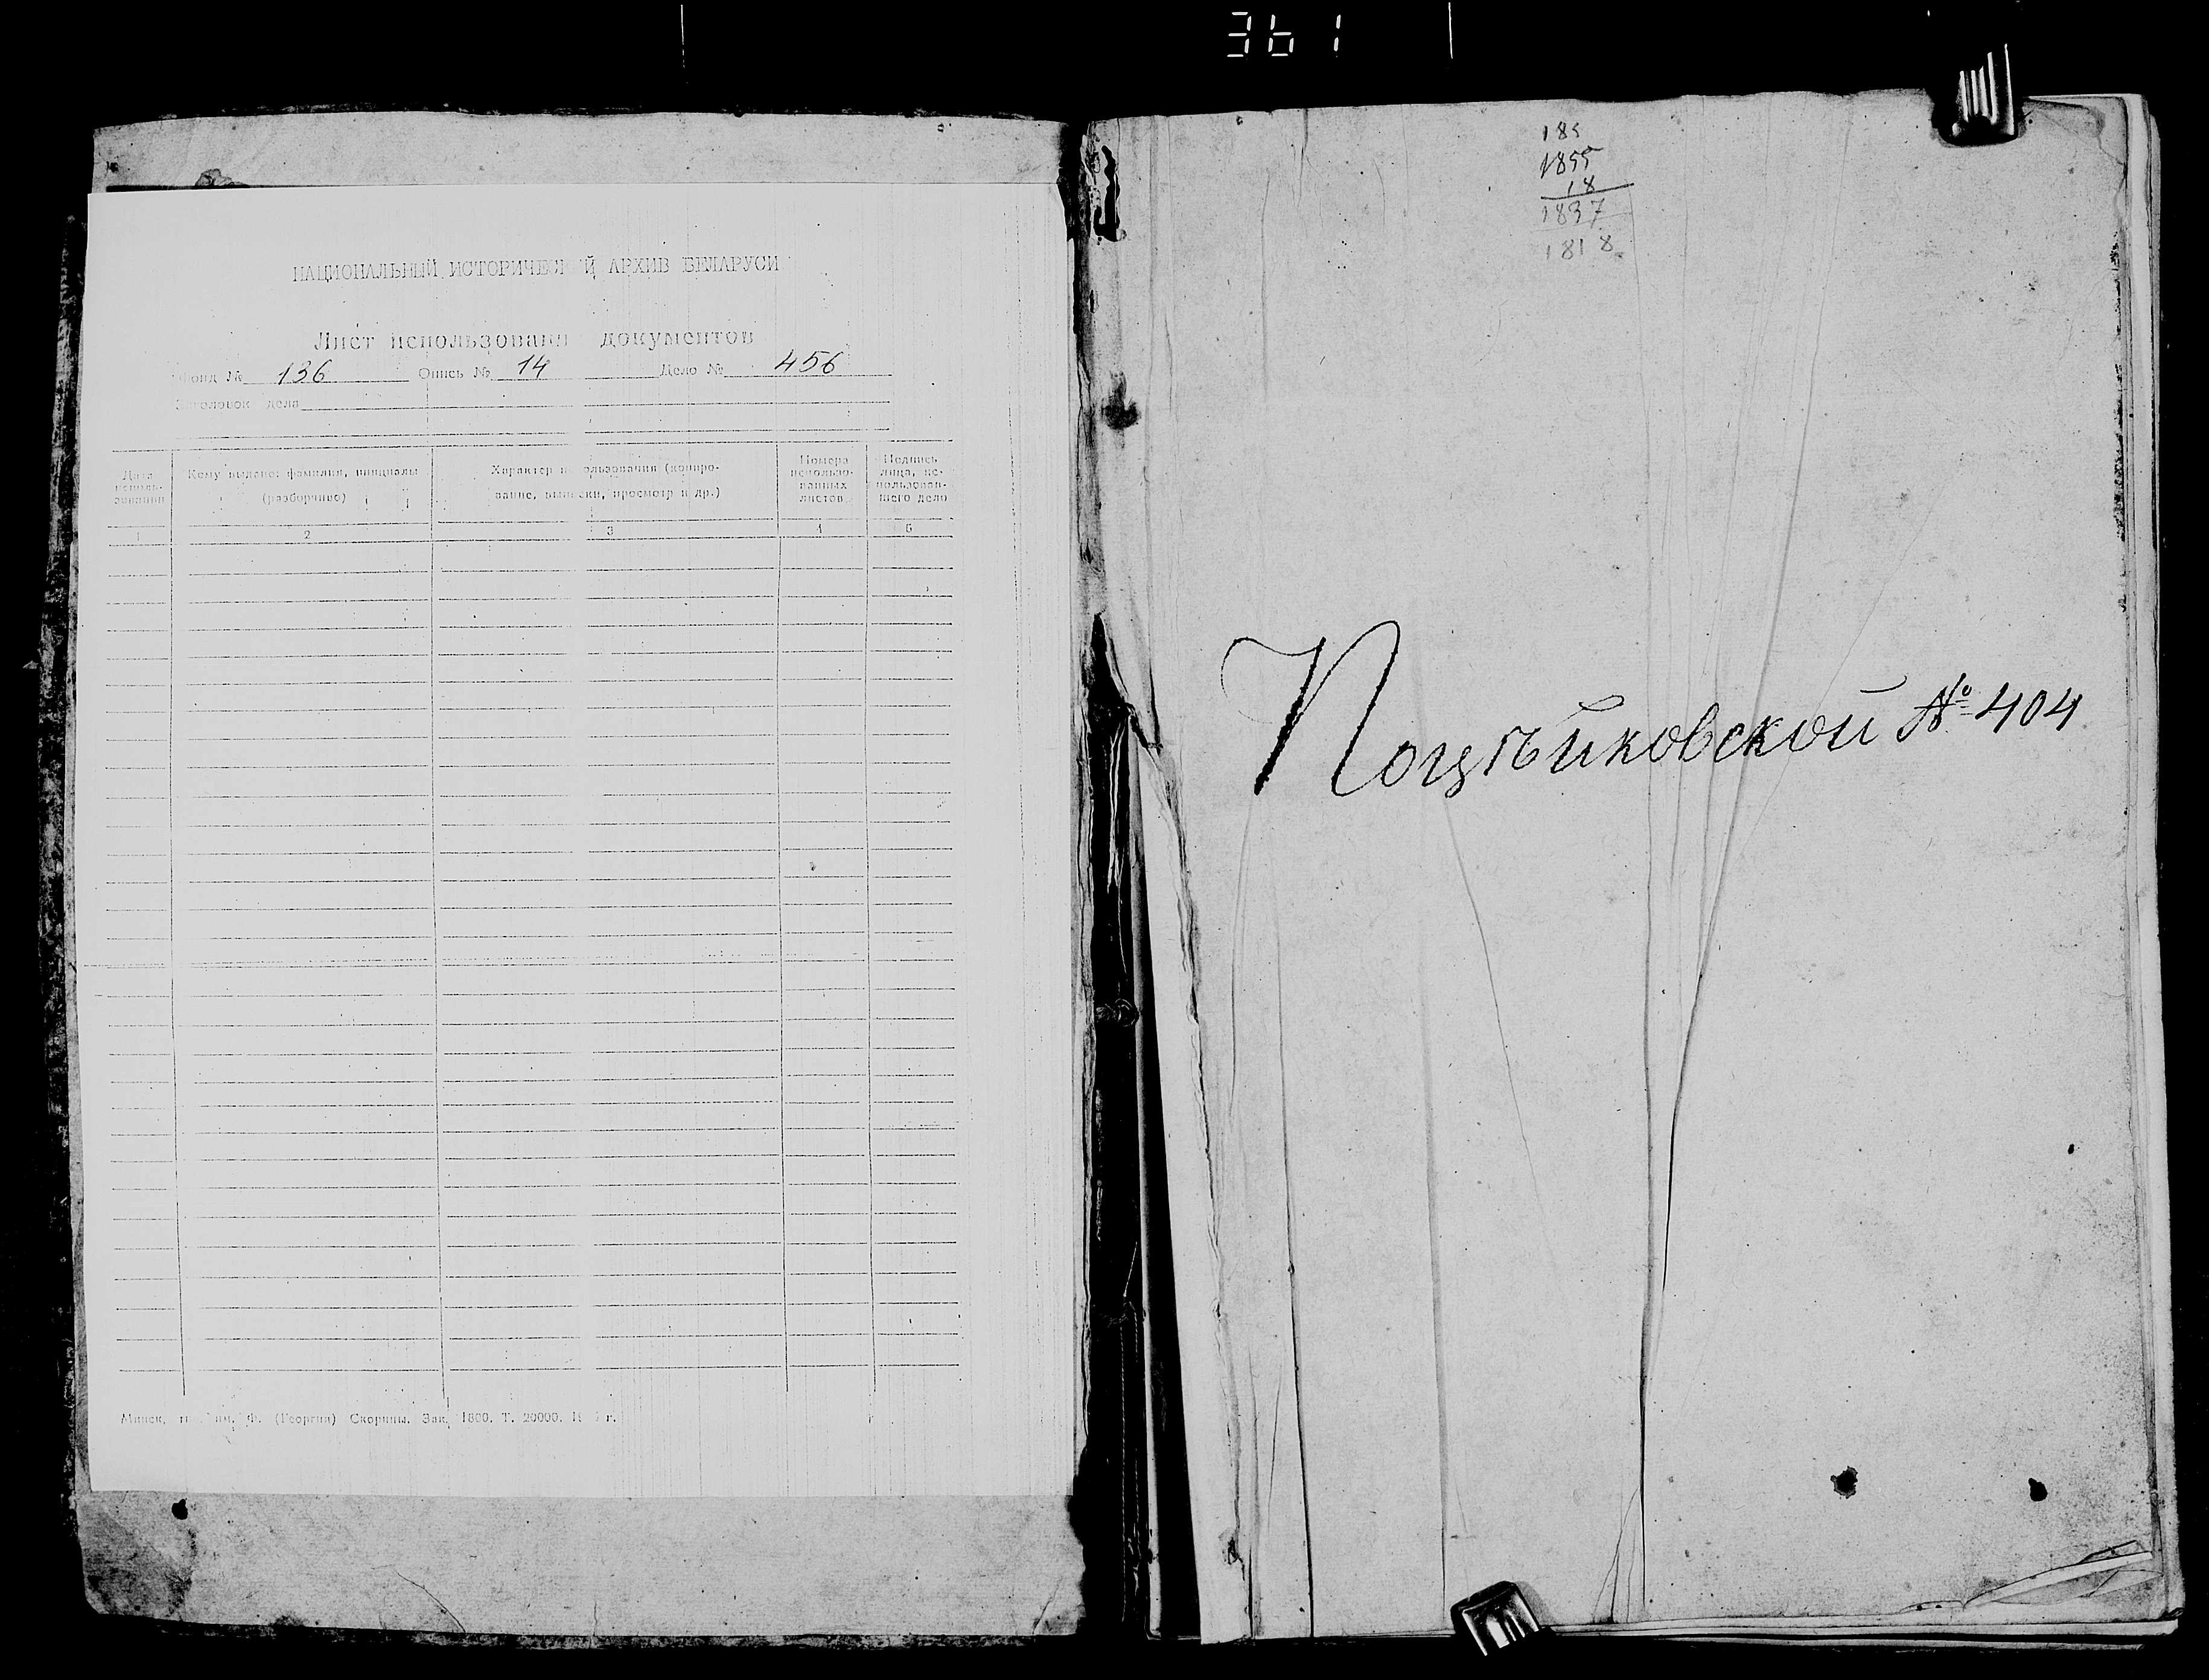 361
НАЦИОНАЛЬНЫЙ ИСТОРИЧЕСКИЙ АРХИВ БЕЛАРУСИ
Лист использования документов
Фонд № 136 Опись № 14 Дело № 456
Заголовок дела
Дата использования
Кому выдано: фамилия, инициалы (разборчиво)
Характер использования (копирование, выписки, просмотр и др.)
Номера использованных листов
Подпись лица, использовавшего дело
1 2 3 4 5
Минск, тип. им. Ф. (Георгия) Скорины. Зак. 1800. Т. 20000.
185
1855
18
1837
1818
Поцѣйковской № 404